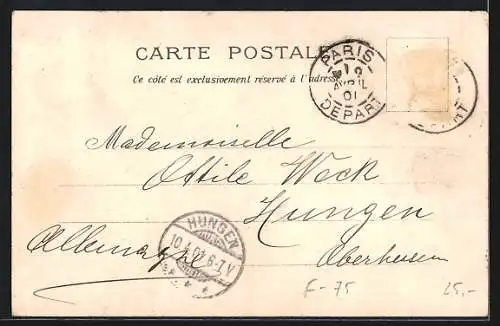 CARTE POSTALE
Ce côté est exclusivement réservé à l'adresse
PARIS
AVRIL
01
DEPART
Mademoiselle
Ottilie Weck
Hungen
Allemagne
Oberhessen
HUNGEN
10.4.01.6-7V
F-75
25,-